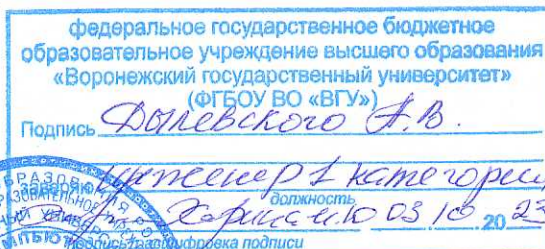 федеральное государственное бюджетное
образовательное учреждение высшего образования
«Воронежский государственный университет»
(ФГБОУ ВО «ВГУ»)
Подпись Дылевского А.В.
заверяю инженер 1 категории
должность
03 10 20 23
подпись, расшифровка подписи